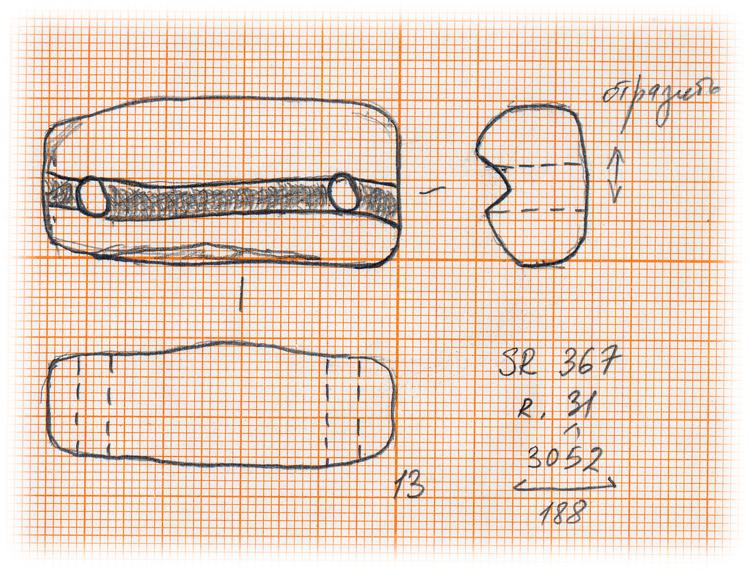 отразить
SR 367
R. 31
3052
188
13